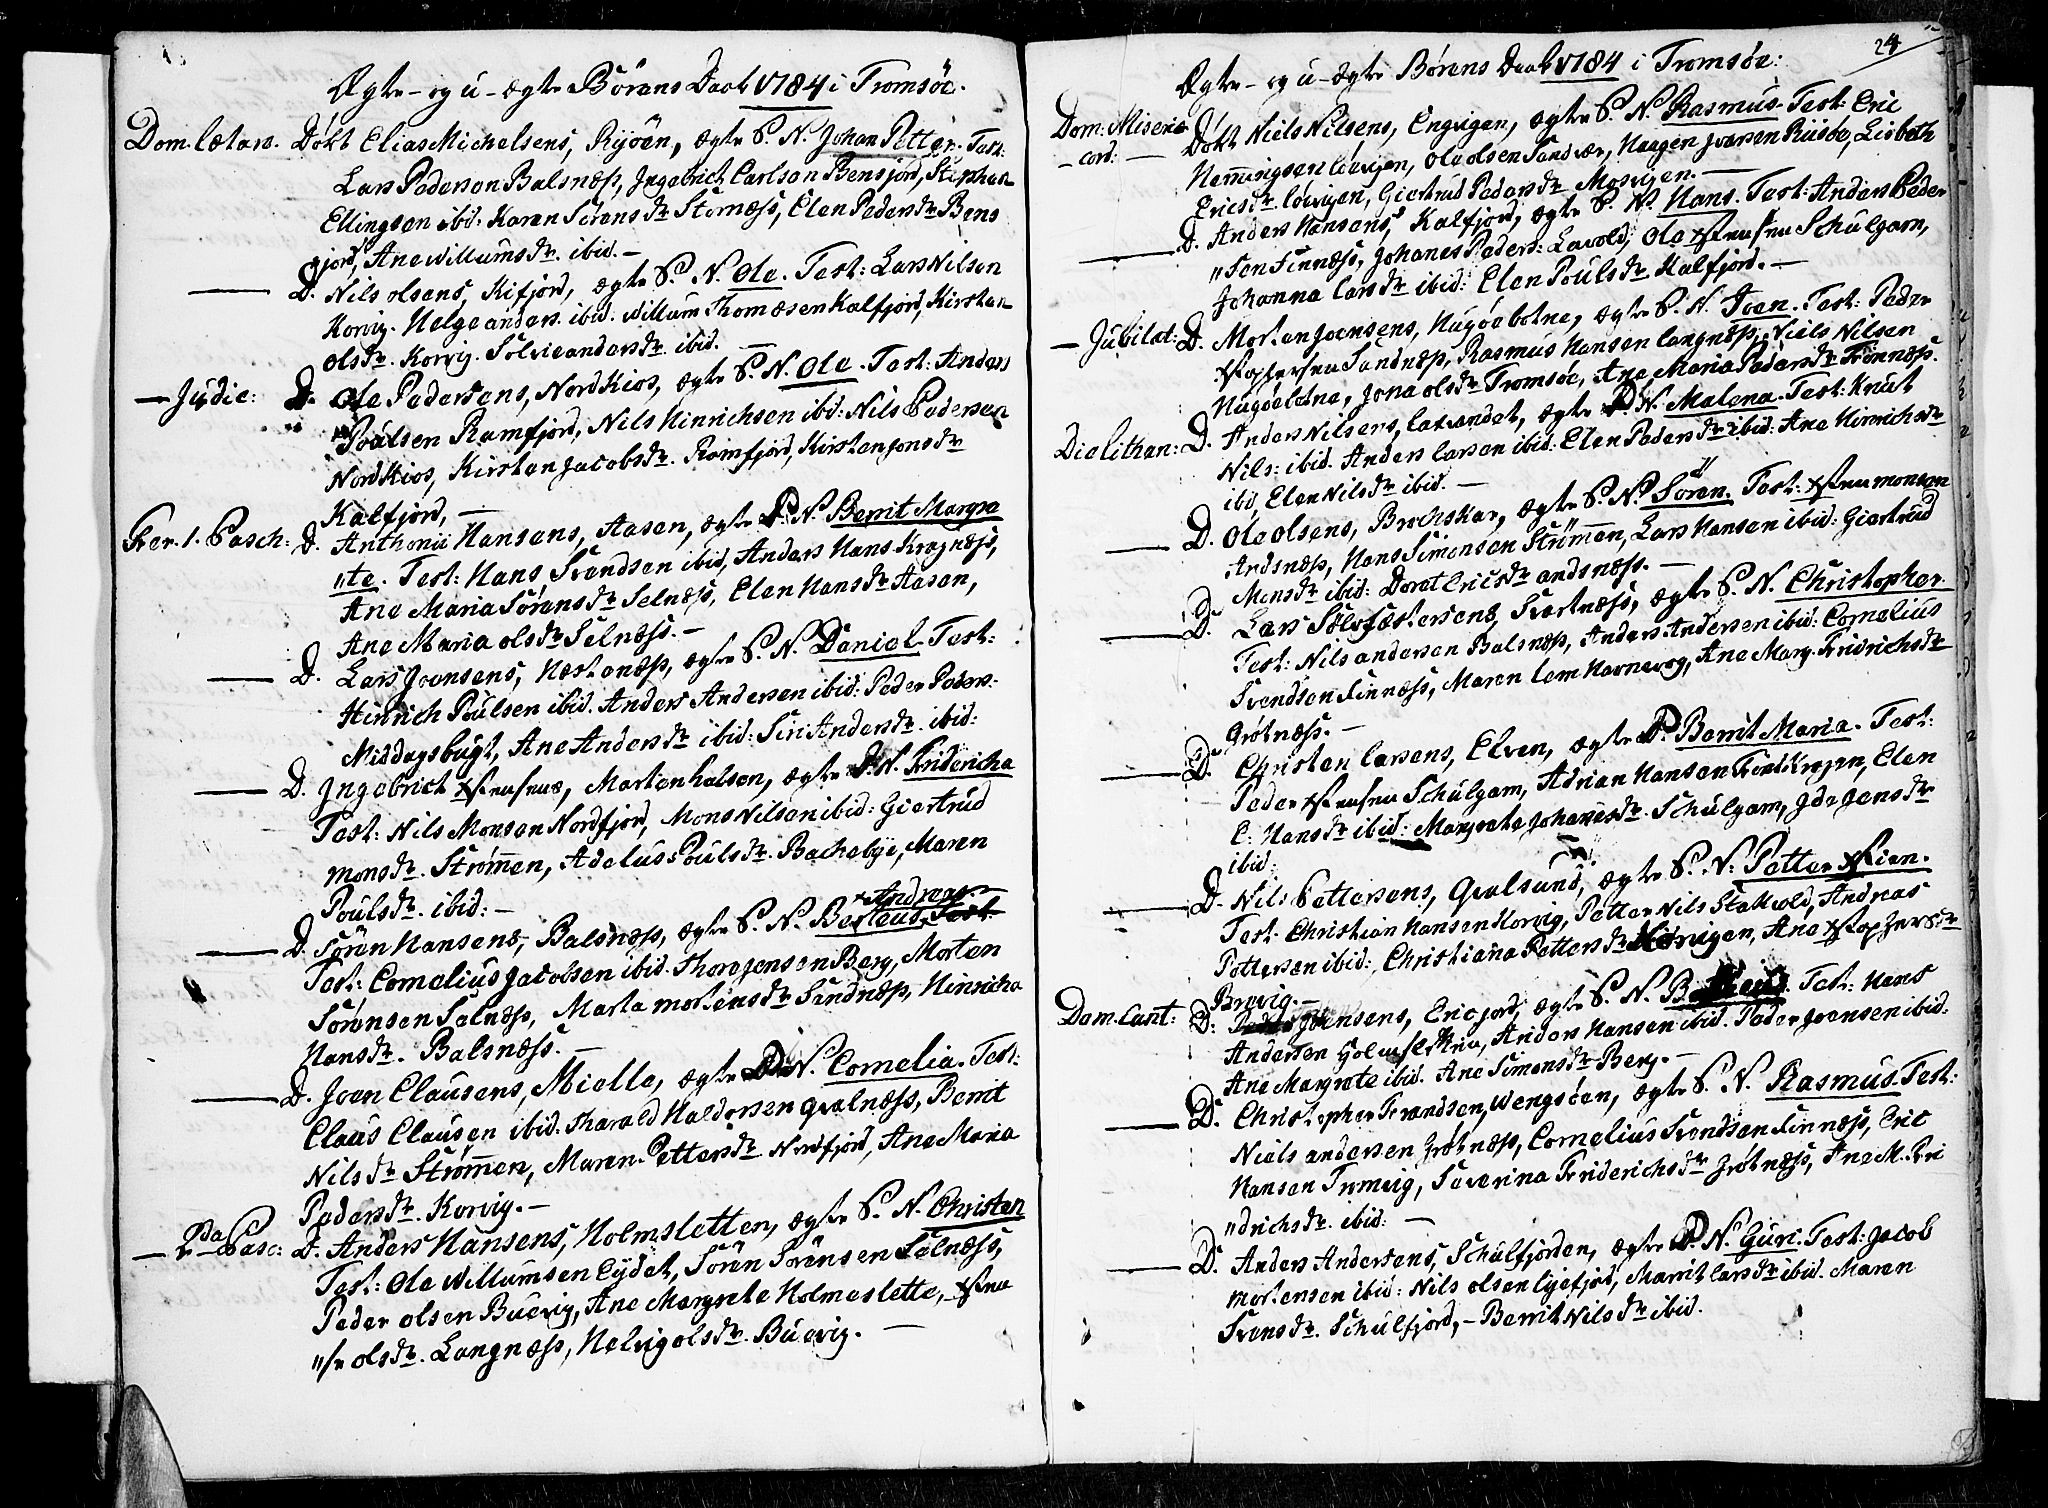 Ægte- og u-ægte Börens Daab 1784 i Tromsöe.
Dom. lætar. Döbt Elias Michelsens, Ryöen, ægte S. N. Johan Petter. Test:
Lars Pedersen Balsnæss, Ingebrict Carlsen Bensjord, Stephan
Ellingsen ibid. Karen Sörens dr Stornæss, Elen Peders dr Bens
jord, Ane Willums dr. ibid. –
D. Nils olsens, Kifjord, ægte S. N. Ole. Test: Lars Nilsen
Korvig. Helge anders. ibid. Willum Thomæsen Kalfjord, Kirsten
ols dr. Korvig. Sölvie anders dr. ibid. –
– Judic: D. Ole Pedersens, Nordkios, ægte S. N. Ole. Test: Anders
Poulsen Ramfjord, Nils Hinrichsen ibid: Nils Pedersen
Nordkios, Kirsten Jacobs dr. Ramfjord, Kirsten Jons dr
Kalfjord, –
Fer. 1. Pasch: D. Anthonii Hansens, Aasen, ægte D. N. Berrit Margre
"te. Test: Hans Svendsen ibid, Anders Hans Kragnæss,
Ane Maria Sörens dr Selnæss, Elen Hans dr Aasen,
Ane Maria ols dr Selnæss. –
D. Lars Joensens, Hestenæss, ægte S. N. Daniel. Test:
Hinrich Poulsen ibid. Anders Andersen ibid: Peder Peders:
Middagsbugt, Ane Anders dr ibid: Siri Anders dr. ibid:
D. Ingebrict Jensens, Mortenhalsen, ægte D. N. Fridericha
Test: Nils Monsen Nordfjord, Mons Nilsen ibid: Giertrud
Mons dr. Strömmen, Adelus Pouls dr. Bachebye, Maren
Pouls dr. ibid: –
Andreas.
D. Sören Hansens, Balsnæss, ægte S. N. Berteus. Test:
Test: Cornelius Jacobsen ibid. Thore Jensen Berg, Morten
Sörensen Selnæss, Marta mortens dr Sandnæss, Hinricha
Hans dr. Balsnæss. –
D. Joen Clausens, Mielle, ægte D. N. Cornelia. Test:
Claus Clausen ibid. Tharald Haldorsen Qvalnæss, Berrit
Nils dr Strömmen, Maren Petters dr Nordfjord, Ane Maria
Peders dr. Korvig. –
– 2da Pasc: D. Anders Hansens, Holmsletten, ægte S. N. Christen
Test: Ole Willumsen Eydet, Sören Sörensen Selnæss,
Peder olsen Buevig, Ane Margrete Holmeslette,
ols dr. Langnæss, Helvig ols dr. Buevig. –
24
Ægte- og u-ægte Börens Daab 1784 i Tromsöe:
Dom: Miseria Döbt Niels Nilsens, Engvigen, ægte S. N. Rasmus. Test: Eric
– cord: – Hemmingsen Lövigen, Ole olsen Sandvær, Haagen Joensen Riisöe, Lisbeth
Erics dr. Lövigen, Giertrud Peders dr Mosvigen. –
D. Anders Hansens, Kalfjord, ægte S. N. Hans. Test: Anders Peder
"sen Finnæss, Johanes Peders: Lavold, Ole Jensen Schulgam,
Johanna Lars dr ibid: Elen Pouls dr Kalfjord. –
– Jubilat: D. Morten Joensens, Hugöebotne, ægte S. N. Joen. Test: Peder
Sandnæss, Rasmus Hansen Langnæss, Niels Nilsen
Hugöebotne, Jona ols dr Tromsöe, Ane Maria Peders dr Trönnæss.
Dialithan: D. Anders Nilsens, Laxvandet, ægte D. N. Malena. Test: Knut
Nils: ibid. Anders Larsen ibid: Elen Peders dr ibid: Ane Hinrichs dr
ibid, Elen Nils dr ibid. –
D. Ole olsens, Brechskar, ægte S. N. Sören. Test:
Andsnæss, Hans Simonsen Strömmen, Lars Hansen ibid: Giertrud
Mons dr ibid: Dorat Erics dr andsnæss. –
D. Lars Sölvfæstersens, Svartnæss, ægte S. N. Christopher.
Test: Nils andersen Balsnæss, Anders Andersen ibid: Cornelius
Svendsen Finnæss, Maren Lem Havnevog, Ane Marg. Fridrichs dr
Grötnæss. –
D. Christen Larsens, Elven, ægte D. Berrit Maria. Test:
Peder Jensen Schulgam, Adrian Hansen Elen
E: Hans dr ibid: Margrete Johannes dr. Schulgam, Ide Jens dr
ibid:
D. Nils Pettersens, Qvalsund, ægte S. N. Petter
Test. Christian Hansen Horvig, Petter Nils Stallvold, Andreas
Pettersen ibid:, Christiana Petters dr Ane
Brevig. –
Dom. Cant: D: Joensens, Ericjord, ægte S. N. Test: Hans
Andersen Anders Hansen ibid. Peder Joensen ibid.
Ane Margrete ibid. Ane Simons dr Berg. –
D. Christopher Frandsen, Wengsöen, ægte S. N. Rasmus. Test:
Niels andersen Grötnæss, Cornelius Svendsen Finnæss, Eric
Hansen Tromvig, Severina Friderichs dr Grötnæss, Ane M. Fri
"drichs dr. ibid: –
D. Anders Andersens, Schulfjorden, ægte D. N. Guri. Test: Jacob
Mortensen ibid: Nils olsen Marrit Lars dr ibid. Maren
Svens dr. Schulfjord, – Berrit Nils dr ibid.